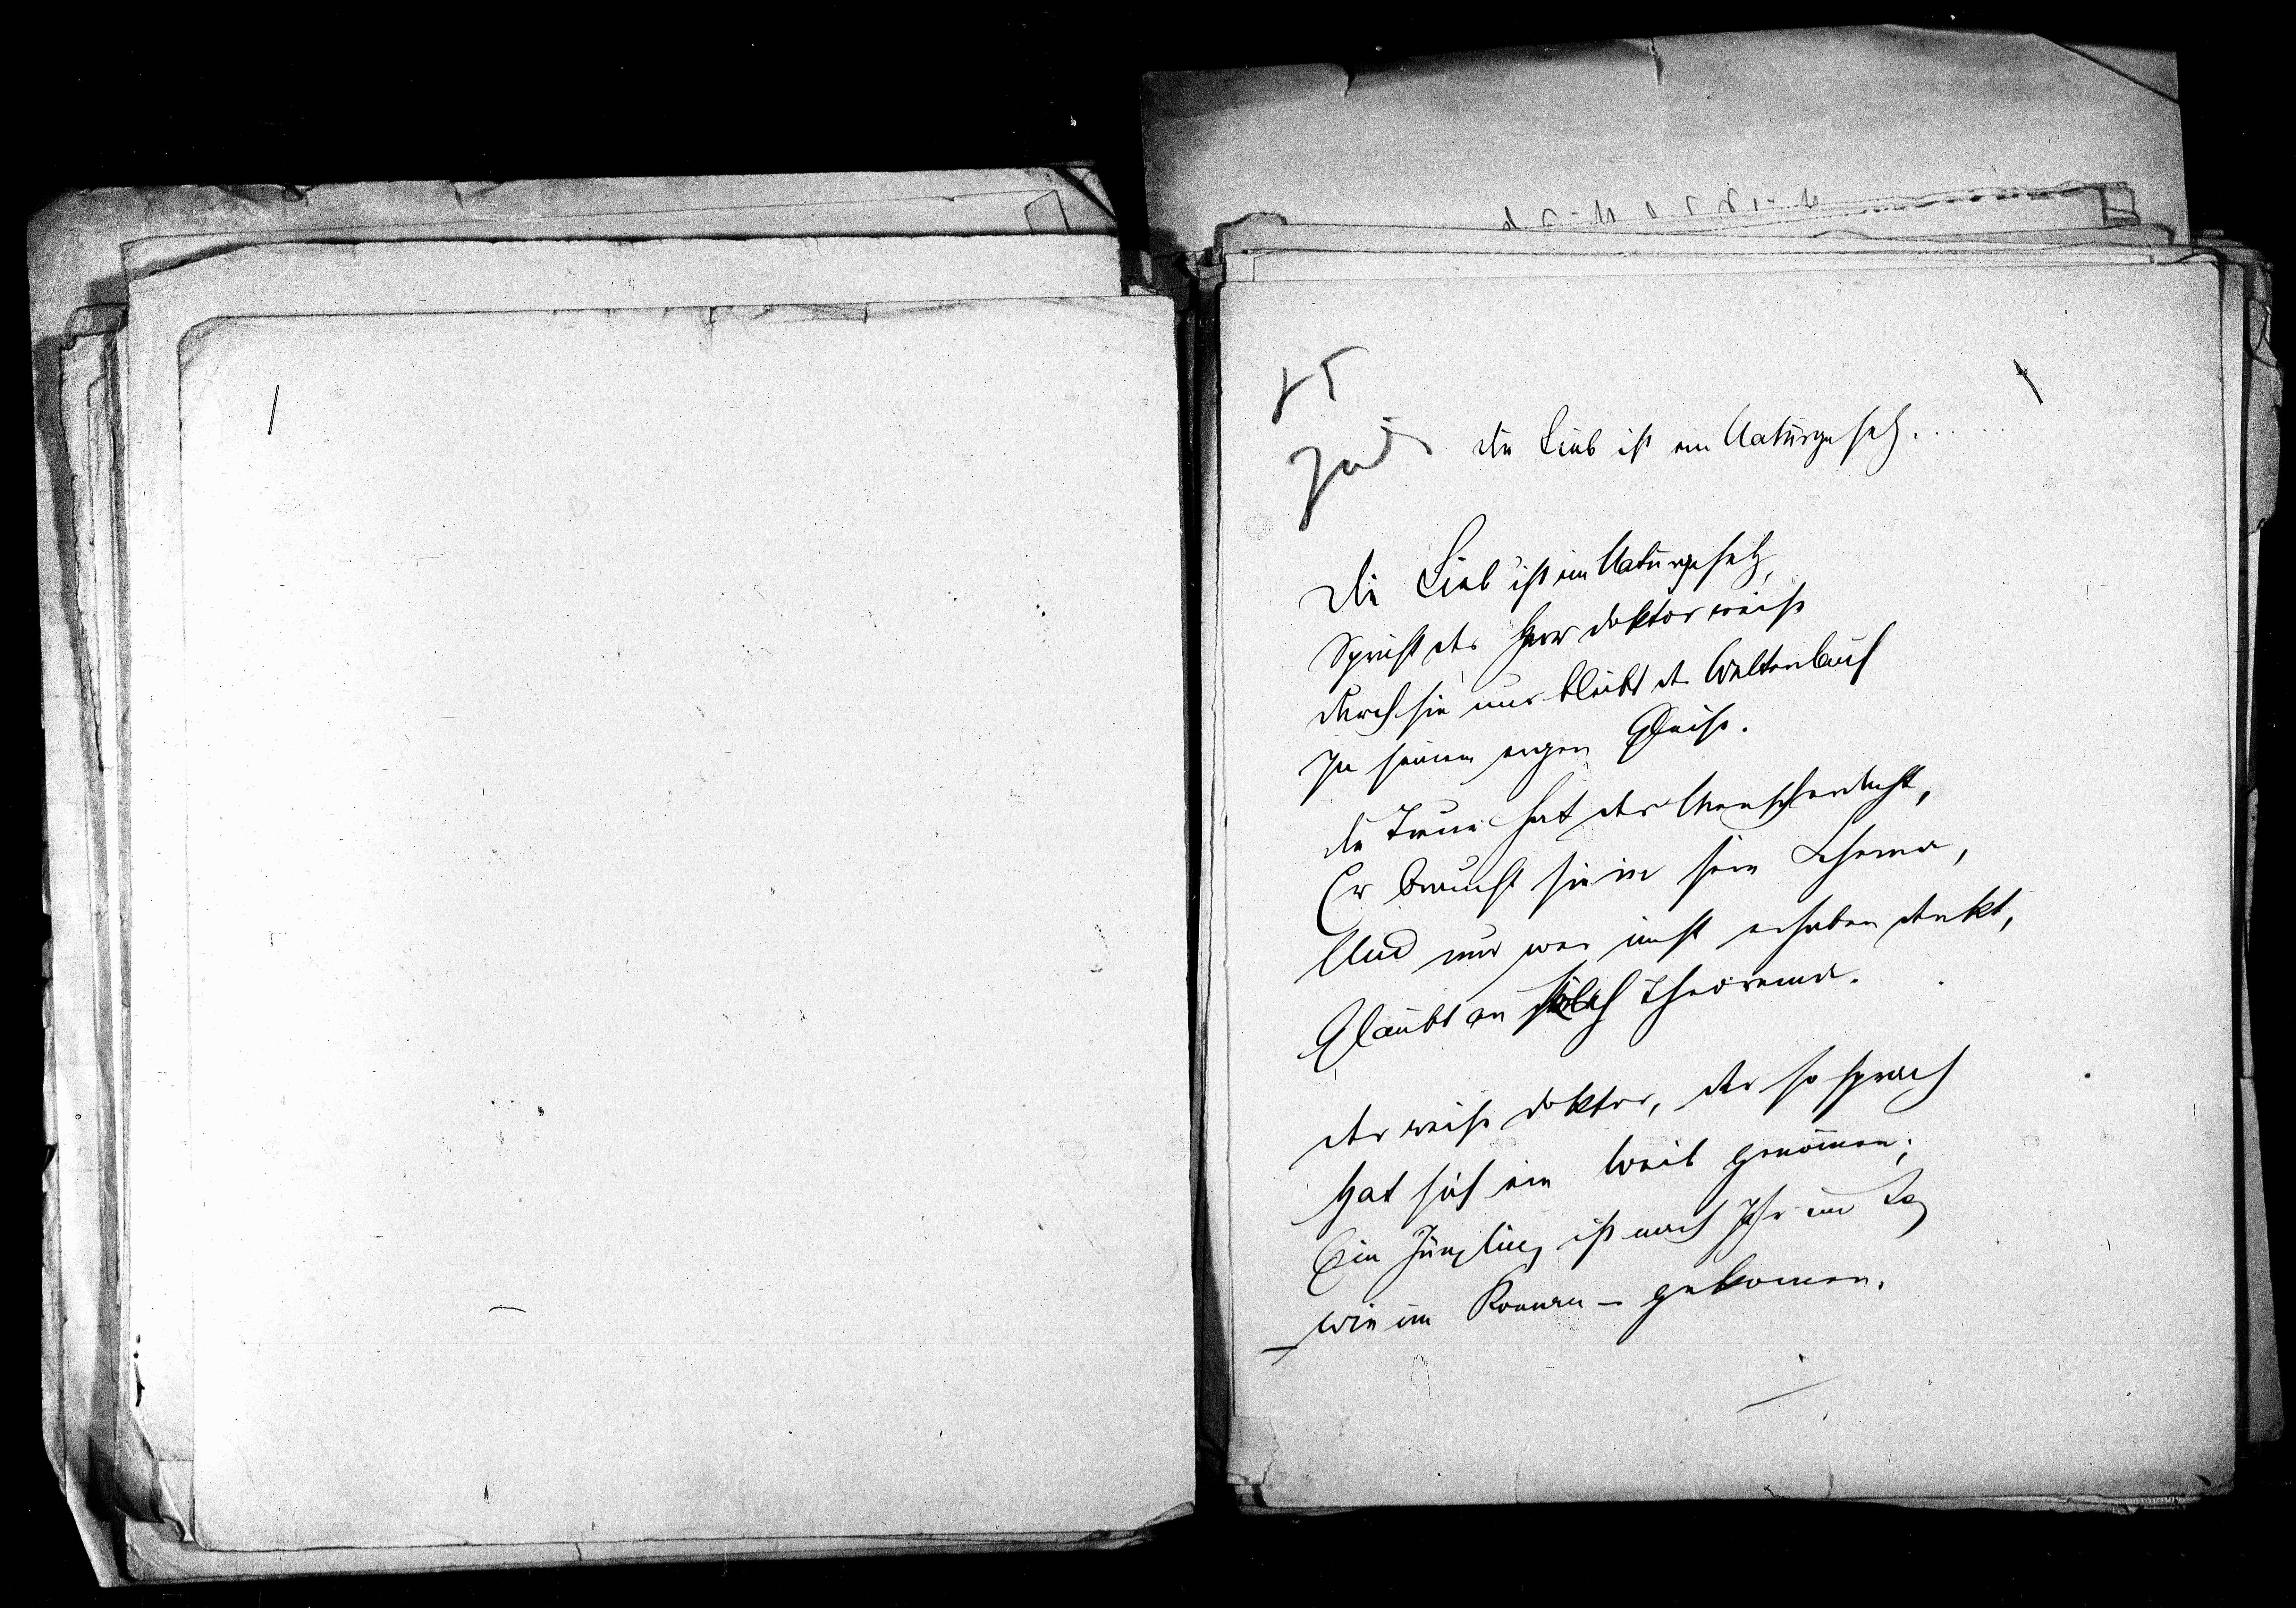 Die Lieb ist ein Naturgesetz.....
Die Lieb ist ein Naturgesetz,
Spricht der Herr Doktor weise
Durch sie nur bleibt der Weltenlauf
In seinem engen Gleise.
Die Treue hat der Mensch erdacht,
Er braucht sie in sein Schema,
Und nur wer nicht erhaben denkt,
Glaubt an solch Theorema.
Der weise Doktor, der so sprach
Hat sich ein Weib genommen;
Ein Jüngling ist nach Jahr und Tag
Wie im Roman – gekommen.